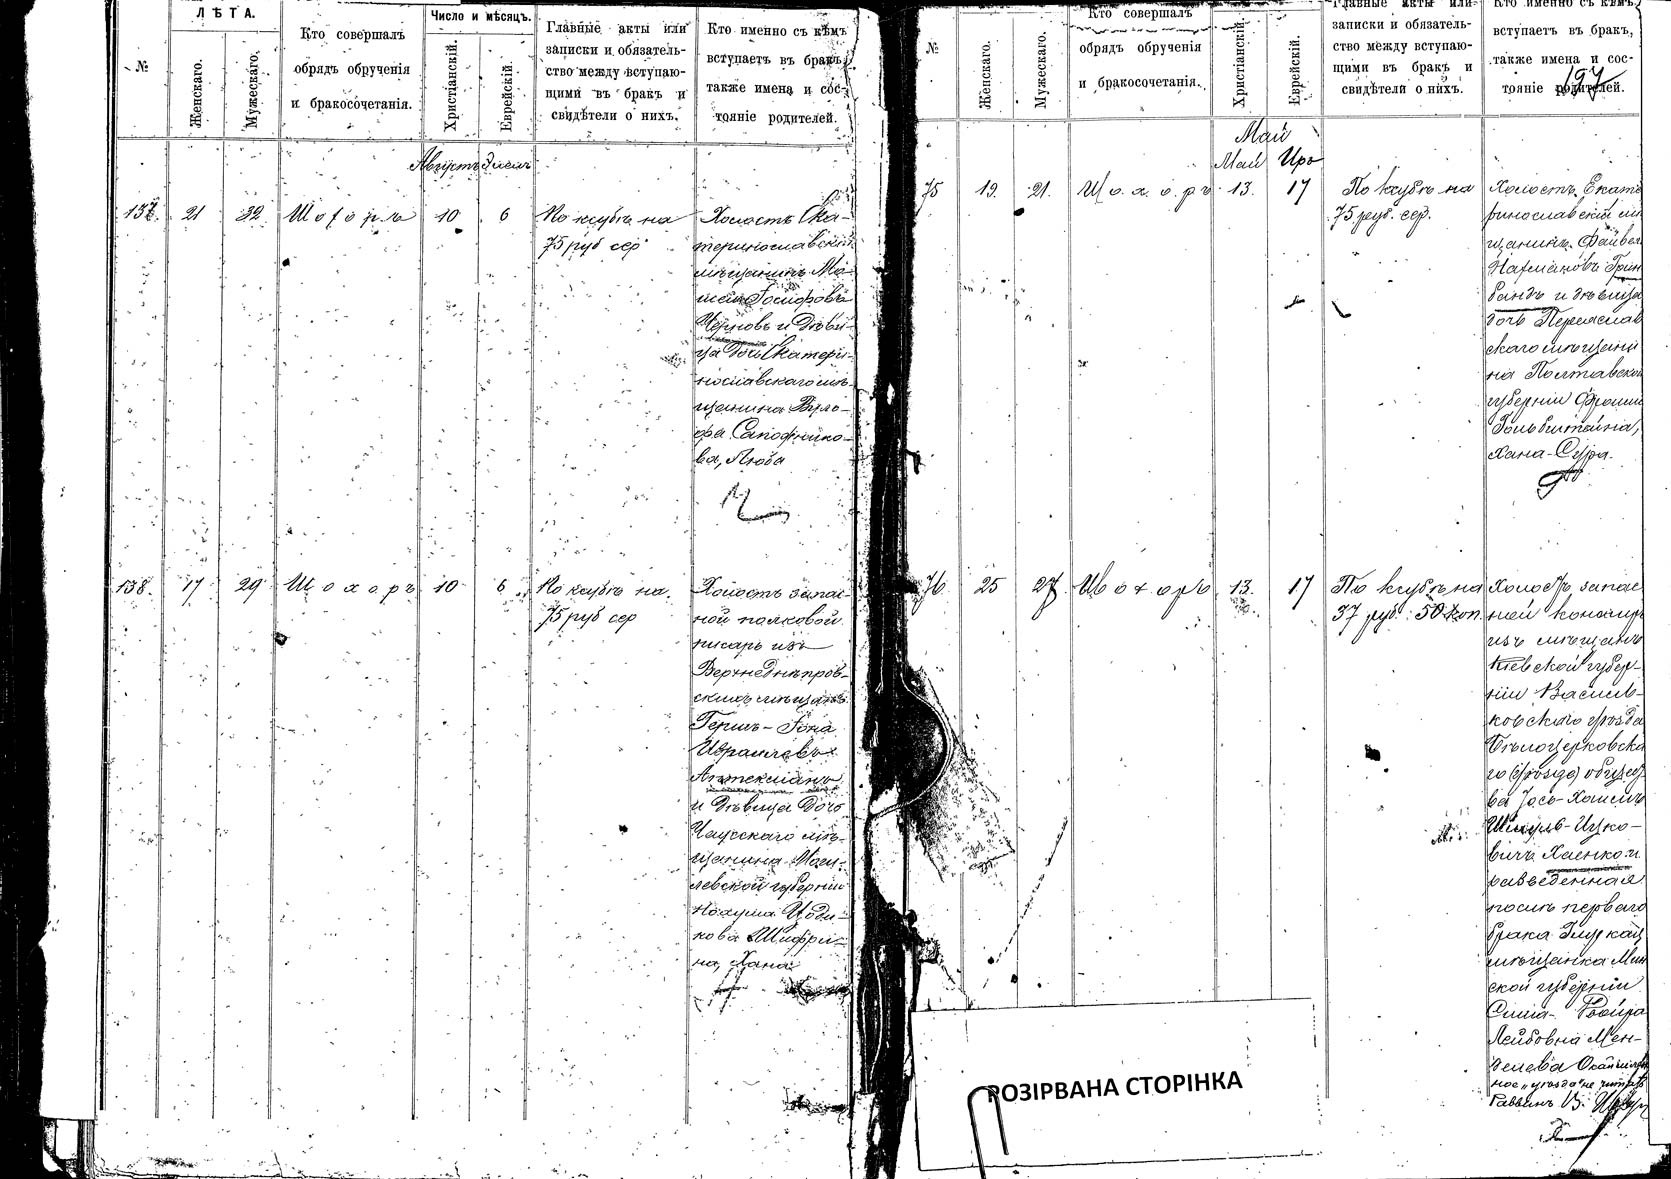 ЛѢТА.
Число и мѣсяцъ.
№
Женскаго.
Мужескаго.
Кто совершалъ
обрядъ обрученія
и бракосочетанія.
Христіанскій.
Еврейскій.
Главные акты или
записки и обязатель-
ство между вступаю-
щими въ бракъ и
свидѣтели о нихъ.
Кто именно съ кѣмъ
вступаетъ въ бракъ,
также имена и сос-
тояніе родителей.
Августъ Элелъ
137. 21 32 Шохоръ 10 6
По ктубѣ на
75 руб сер
Холостъ Ека-
теринославскій
мѣщанинъ Мо-
Іосифовъ
Черновъ и дѣви-
ца дочь Екатери-
нославскаго мѣ-
щанина
Сапожнико-
ва, Люба
138. 17 29 Шохоръ 10 6
По ктубѣ на
75 руб сер
Холостъ запас-
ной полковой
писарь изъ
Верхнеднѣпров-
скихъ мѣщанъ
Гершъ-Іона
Израилевъ
Аптекманъ
и дѣвица дочь
Чаусскаго мѣ-
щанина Моги-
левской губерніи
Нохума
Шифри-
на, Хана
№
Женскаго.
Мужескаго.
Кто совершалъ
обрядъ обрученія
и бракосочетанія.
Христіанскій
Еврейскій.
Главные акты или
записки и обязатель-
ство между вступаю-
щими въ бракъ и
свидѣтели о нихъ.
Кто именно съ кѣмъ
вступаетъ въ бракъ,
также имена и сос-
тояніе родителей.
197
Май
Май Иръ
75 19. 21. Шохоръ 13. 17
По ктубѣ на
75 руб. сер.
Холостъ Екате
ринославскій мѣ
щанинъ Файвел
Нахмановъ Грин
бандъ и дѣвица
дочь Переяслав
скаго мѣщани
на Полтавской
губерніи Фроим
Гольбштейна,
Хана-Сура.
76 25 27 Шохоръ 13. 17
По ктубѣ на
37 руб. 50 коп
Холостъ запас
ной
изъ мѣщанъ
Кіевской губер-
ніи Василь-
ковскаго уѣзда
Бѣлоцерковска
го (уѣзда) общест
ва Іось-Хаимъ
Шмуль-Ицко-
вичъ Хаенко и
разведенная
послѣ перваго
брака
мѣщанка Мин
ской губерніи
Сима-
Лейбовна Мен-
делева
ное „уѣзда" не читать
Раввинъ
РОЗІРВАНА СТОРІНКА